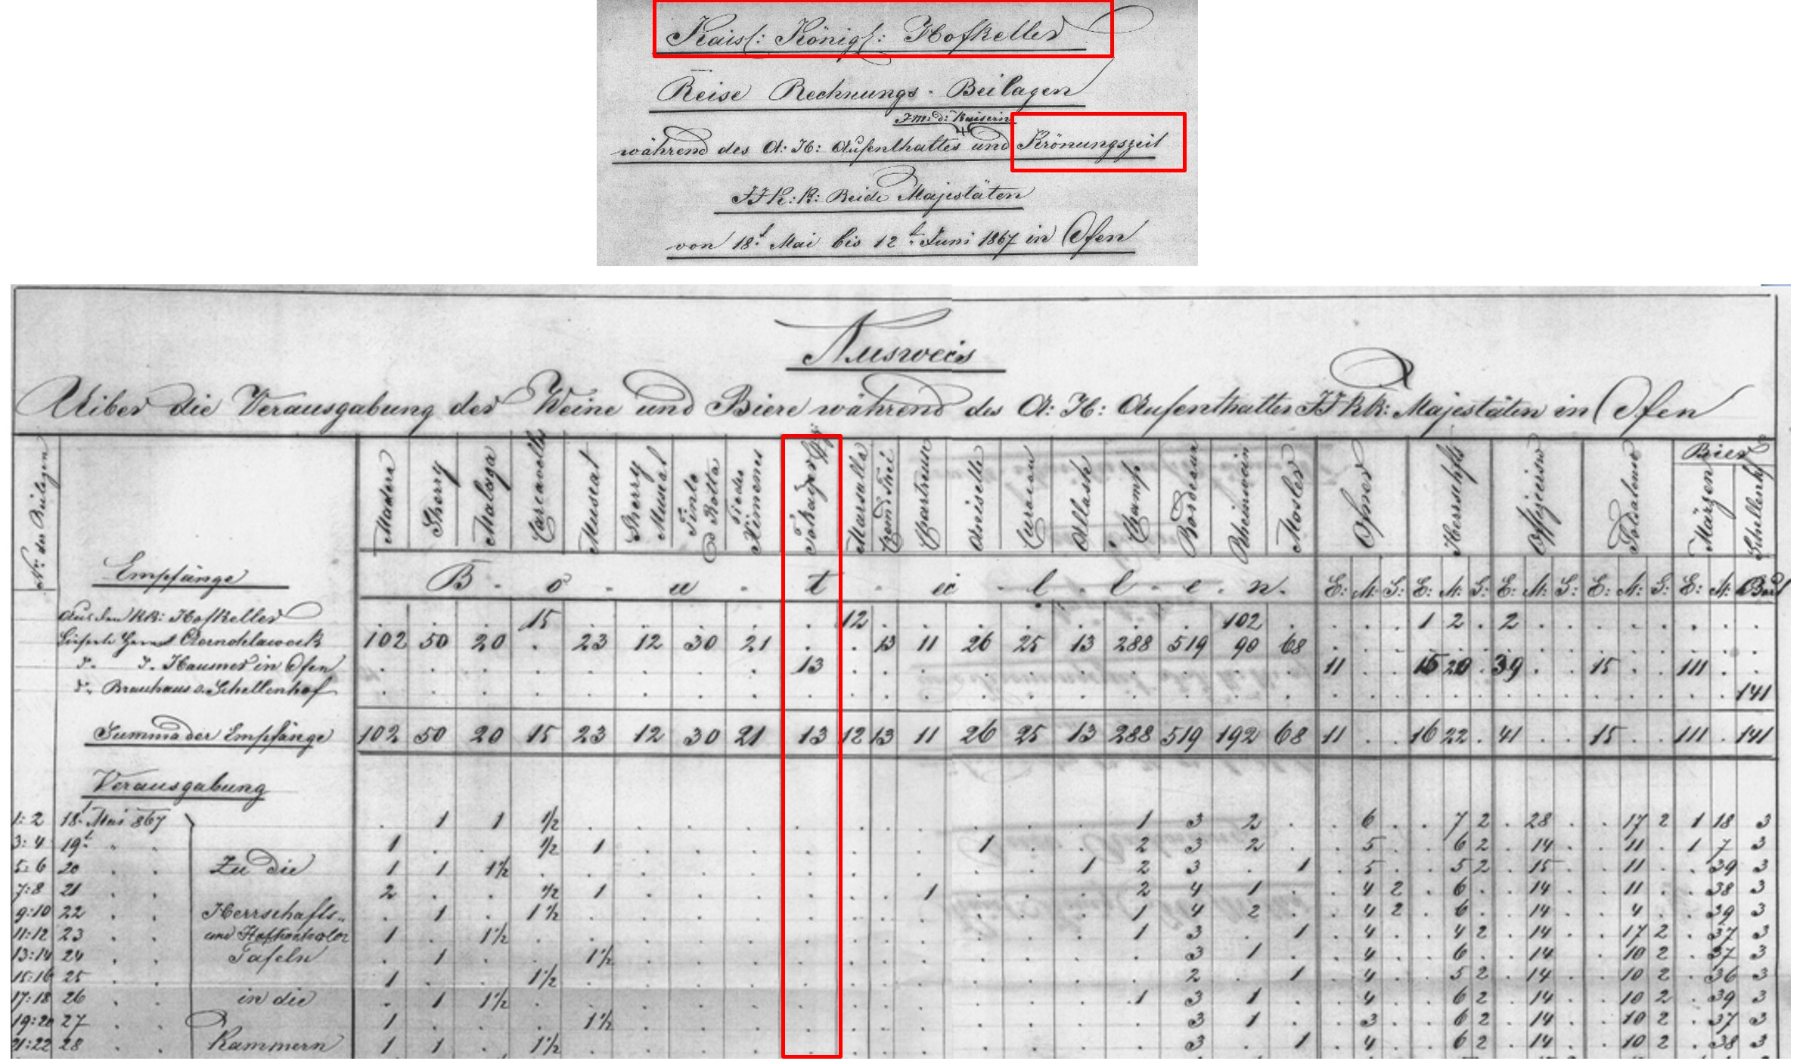 Kaisl: Königl: Hofkeller
Reise Rechnungs-Beilagen
I.M. d: Kaiserin
während des A: H: Aufenthaltes und Krönungszeit
I I k: k: Beide Majestäten
von 18t Mai bis 12t Juni 1867 in Ofen
Ausweis
Uiber die Verausgabung der Weine und Biere während des A: H: Aufenthaltes I I k k: Majestäten in Ofen
No: der Beilagen Empfänge Madera Sherry Malaga Carcavelh Muscat Sherry Muscat Tinto d Rotta Piedro Ximenes Tokayer Marsalla Chartreuse Anisette Curacau Allasch Champ Bordeaux Rheinwein Mosler Ofner Herrschfts Offiziers Bier Märzen Schellenhf
B o u t e i l l e n. E: M: S: E: M: S: E: M: S: E: M: S: E: M:
Aus dem kk: Hofkeller . . . 15 . . . . . 12 . . . . . . . 102 . . . . 1 2 . 2 . . . . . . . .
102 50 20 . 23 12 30 21 . . 13 11 26 25 13 288 519 90 68
do do Hausner in Ofen 13 11 15 20 . 39 15 111
do Brauhaus o. Schellenhof 141
Summa der Empfänge 102 50 20 15 23 12 30 21 13 12 13 11 26 25 13 288 519 192 68 11 . . 16 22 . 41 . . 15 . . 111 . 141
Verausgabung
1: 2 18t Mai 867 . 1 1 ½ 1 3 2 6 7 2 28 17 2 1 18 3
3: 4 19t 1 . . ½ 1 1 2 3 2 5 6 2 14 11 1 7 3
5: 6 20 Zu die 1 1 1½ 1 2 3 1 5 5 2 15 11 39 3
7: 8 21 2 ½ 1 1 2 4 1 4 2 6 14 11 38 3
9: 10 22 Herrschafts- 1 1½ 1 4 2 4 2 6 14 4 39 3
11: 12 23 und Hofkontrolor 1 1½ 1 3 1 4 4 2 14 17 2 37 3
13: 14 24 Tafeln 1 1½ 3 1 4 6 14 10 2 37 3
15: 16 25 1 1½ 2 1 4 5 2 14 10 2 36 3
17: 18 26 in die 1 1½ 1 3 1 4 6 2 14 10 2 39 3
19: 20 27 1 1½ 3 1 3 6 2 14 10 2 37 3
21: 22 28 Kammern 1 1 1½ 3 1 4 6 2 14 10 2 38 3